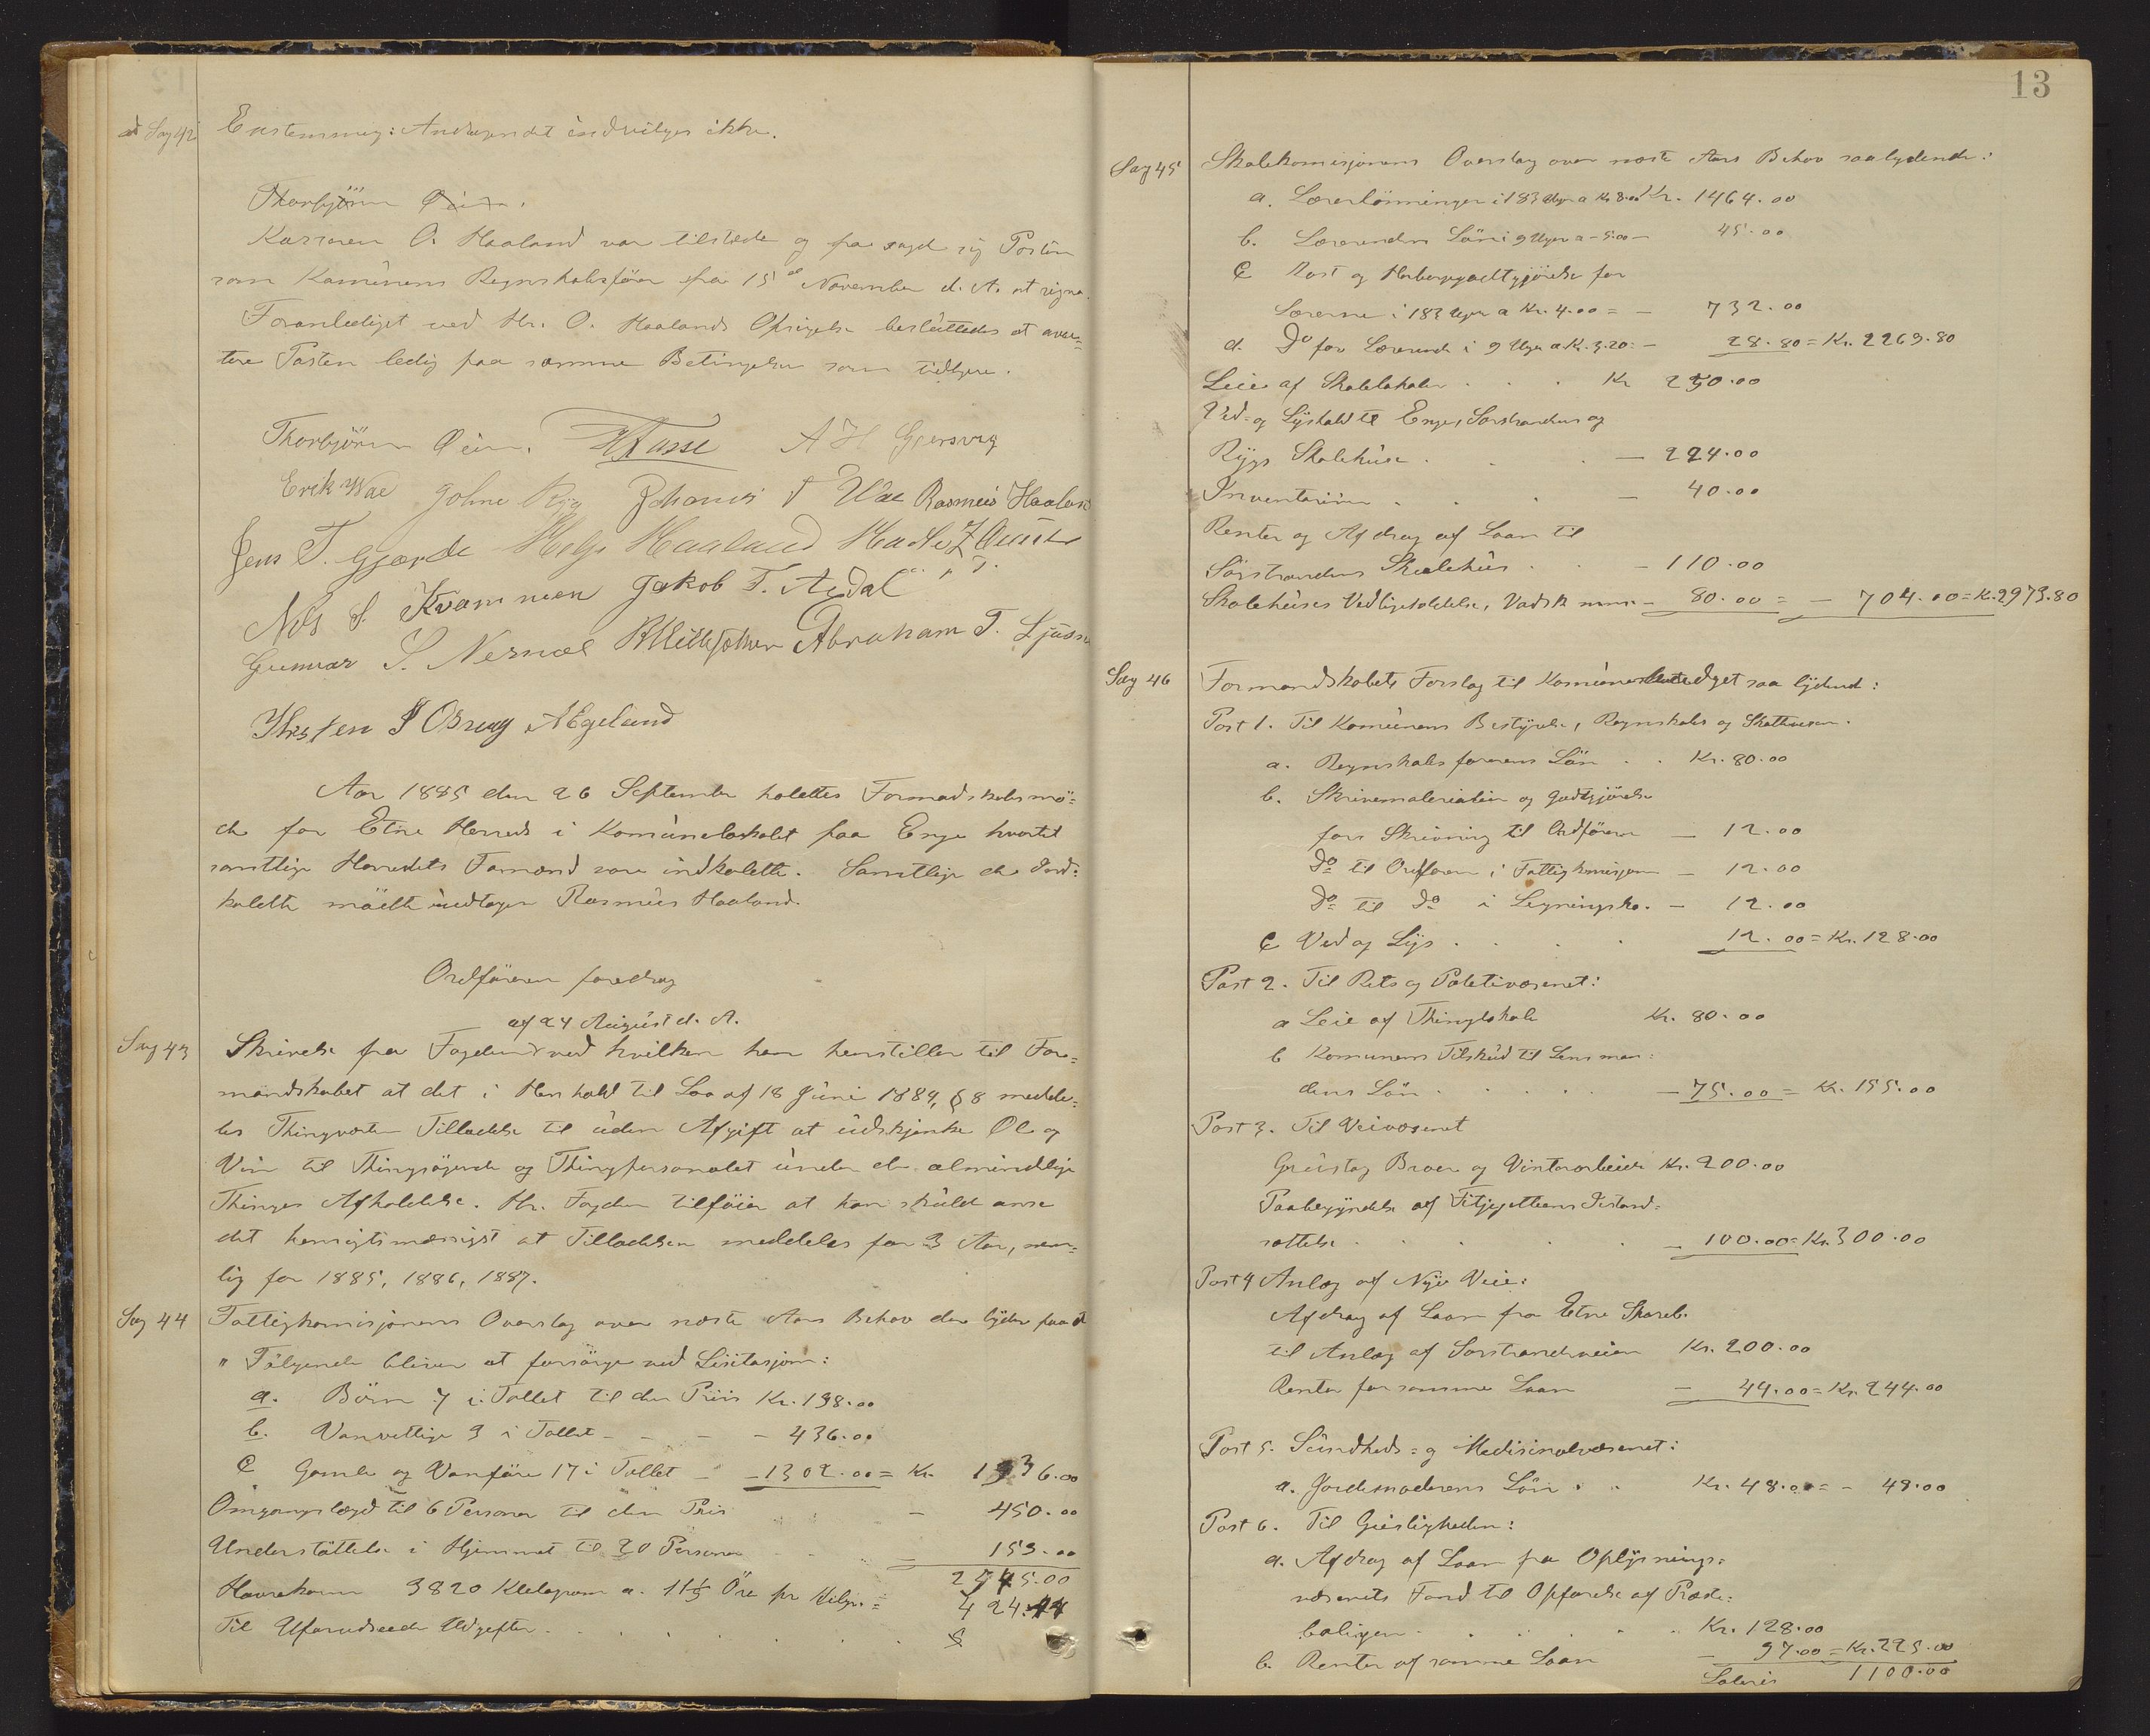 ad Sag 42 Enstemmig: Andragendet indvilges ikke.
Thorbjörn Øien.
Kassereren O. Haaland var tilstede og fra sagde sig Posten
som Komunens Regnskabsförer fra 15de November d. A. at regne.
Foranlediget ved Hr. O. Haalands Opsigelse besluttedes at aver-
tere Posten ledig paa samme Betingelser som tidligere.
Thorbjörn Øien. A H Gjersvig
Erik Wae Johne Ryg Johannes J Wae Rasmus Haaland
Jens T. Gjærde Helge Haaland
Nils S. Kvammen Jakob T. Ardal
Gunnar S. Nernæs Abraham T.
A Egeland
Aar 1885 den 26 September holdtes Formandskabsmö-
de for Etne Herred i Komunelokalet paa Enge hvortil
samtlige Herredets Formænd vare indkaldte. Samtlige de Ind-
kaldte mödte undtagen Rasmus Haaland.
Ordföreren foredrog
af 24 August d. A.
Sag 43 Skrivelse fra Fogden ved hvilken han henstiller til For-
mandskabet at det i Henhold til Lov af 18 Juni 1884, § 8 medde-
les Thingvorten Tilladelse til uden Afgift at udskjenke Øl og
Vin til Thingsögende og Thingpersonalet under de almindelige
Thinges Afholdelse. Hr. Fogden tilföier at han skulde anse
det hensigtsmæssigst at Tilladelsen meddeles for 3 Aar, nem-
lig for 1885, 1886, 1887.
Sag 44 Fattigkomisjonens Overslag over næste Aars Behov der lyder paa at
" Fölgende bliver at forsörge ved Lisitasjon:
a. Börn 7 i Tallet til den Priis Kr. 198.00
b. Vanvittige 3 i Tallet - - - - 436.00
c Gamle og Vanföre 17 i Tallet - - 1302.00 = Kr. 1936.00
Omgangslægd til 6 Personer til den Pris - 450.00
Understöttelse i Hjemmet til 20 Personer - 159.00
2545.00
Havrekorn 3820 Kilogram a. 11 1/9 Öre pr Kilgr. = 424.44
Til Uforudseede Udgifter . . . . . .
13
Sag 45 Skolekomisjonens Overslag over næste Aars Behov saalydende:
a. Lærerlönninger i 183 Uger a Kr. 8.00 Kr. 1464.00
b. Lærerindens Lön i 9 Uger a - 5.00 - 45.00
c Kost og Herbergegodtgjörelse for
Lærerne i 183 Uger a Kr. 4.00 = - 732.00
d. Do for Lærerinde i 9 Uger a. Kr. 3.20: - 28.80 = Kr. 2269.80
Leie af Skolelokaler . . . Kr 250.00
Ved- og Lyshold til Enges, Sörstrandens og
Rygs Skolehuse . . . - 224.00
Inventarium . . . - 40.00
Renter og Afdrag af Laan til
Sörstrandens Skolehus . . - 110.00
Skolehuses Vedligeholdelse, Vadsk m.m. - 80.00 = - 704.00 = K. 2973.80
Sag 46 Formandskabets Forslag til Komunebudgettet saa lydend:
Post 1. Til Komunens Bestyrelse, Regnskabs og Skattvesen.
a. Regnskabsförerens Lön . . Kr. 80.00
b. Skrivematerialier og godtgjörelse
fors Skrivning til Ordföreren - 12.00
Do til Ordföreren i Fattigkomisjonen - 12.00
Do til Do i Ligningsko. - 12.00
c Ved og Lys . . . . 12.00 = Kr. 128.00
Post 2. Til Rets og Politivæsenet:
a Leie af Thinglokale Kr. 80.00
b Komunens Tilskud til Lensman-
dens Lön . . . . - 75.00 = Kr. 155.00
Post 3. Til Veivæsenet
Grustag Broer og Vinterarbeide Kr. 200.00
Paabegyndelse af Istand-
sættelse . . . . . - 100.00 = Kr. 300.00
Post 4 Anlæg af Nye Veie:
Afdrag af Laan fra Etne Spareb.
til Anlæg af Sörstrandsveien Kr. 200.00
Renter for samme Laan - 44.00 = Kr. 244.00
Post 5. Sundheds- og Medisinalvæsenet:
a. Jordemoderens Lön . . Kr. 48.00 = - 48.00
Post 6. Til Geistligheden:
a. Afdrag af Laan fra Oplysnings-
væsenets Fond til Opförelse af Præste-
boligen . . . . . . Kr. 128.00
b. Renter af samme Laan - 97.00 = Kr. 225.00
Lateris 1100.00